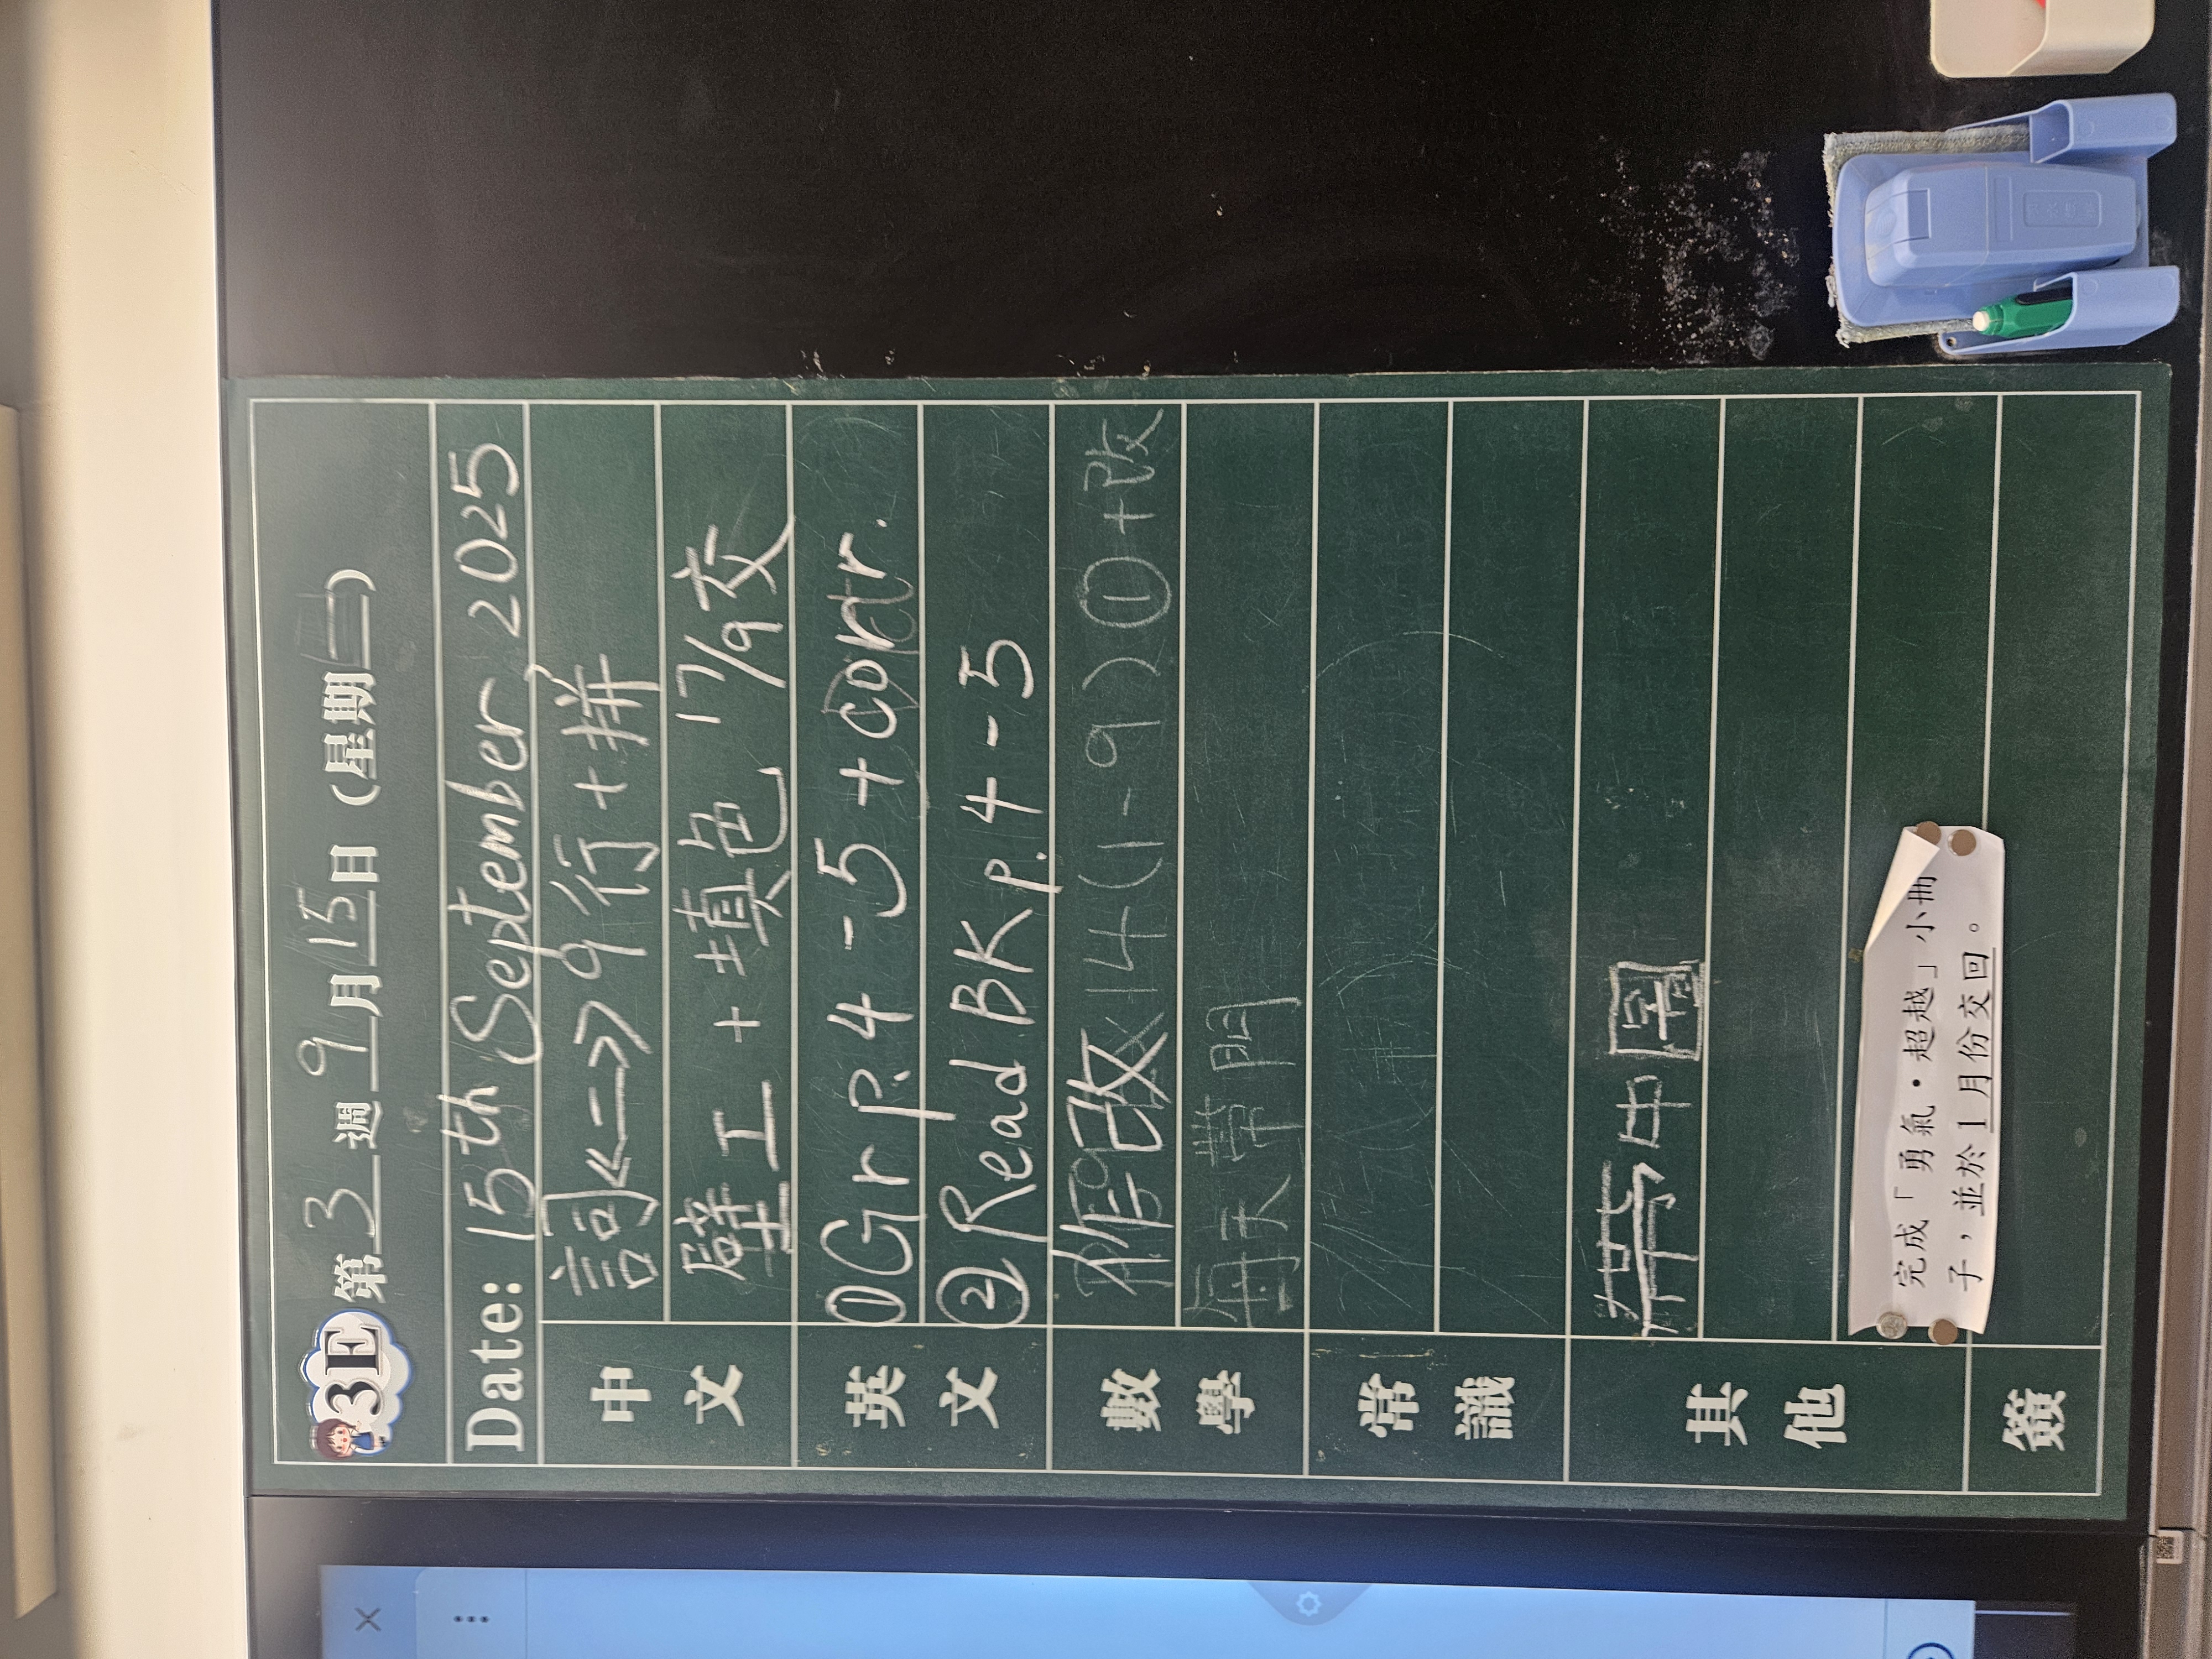 3E 第 3 週 9 月 15 日 (星期一)
Date: 15th September 2025
中文
詞《二》9行+拼
壁工 + 填色 17/9交
英文
①Gr P.4-5 + corr.
②Read BK p.4-5
數學
作改×14(1-9)①+改
每天帶
常識
其他
帶中圖
完成「勇氣·超越」小冊
子，並於1月份交回。
簽